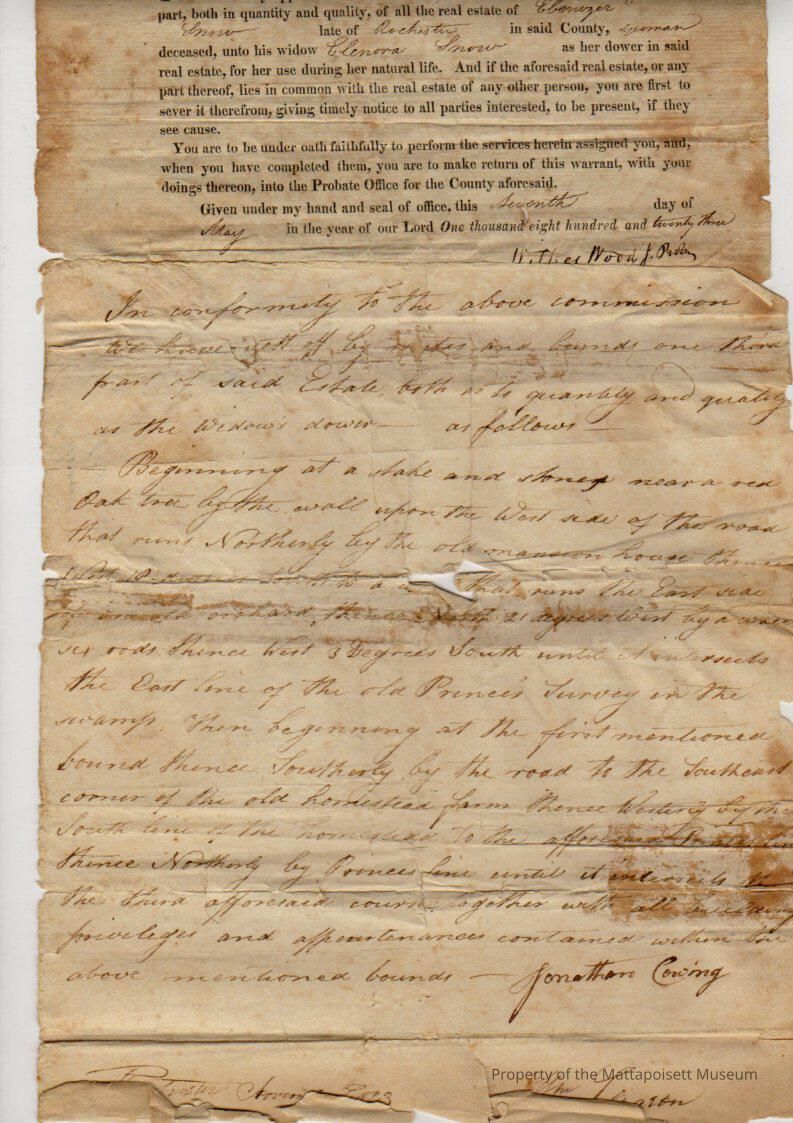 part, both in quantity and quality, of all the real estate of Ebenezer
Snow late of Rochester in said County, yeoman
deceased, unto his widow Elenora Snow as her dower in said
real estate, for her use during her natural life. And if the aforesaid real estate, or any
part thereof, lies in common with the real estate of any other person, you are first to
sever it therefrom, giving timely notice to all parties interested, to be present, if they
see cause.
You are to be under oath faithfully to perform the services herein assigned you, and,
when you have completed them, you are to make return of this warrant, with your
doings thereon, into the Probate Office for the County aforesaid.
Given under my hand and seal of office, this Seventh day of
May in the year of our Lord One thousand eight hundred and twenty three
Wilkes Wood J. Prob
In conformity to the above commission
We have sett off by and bounds one third
part of said Estate, both as to quantity and quality
as the Widow's dower — as follows —
Beginning at a stake and stones near a red
Oak tree by the wall upon the West side of the road
that runs Northerly by the old mansion house thence
West 18 degrees South to a that runs the East side
of an old orchard, thence North 21 degrees West by a
six rods thence West 3 Degrees South until it intersects
the East line of the old Princes Survey in the
swamp. Then beginning at the first mentioned
bound thence Southerly by the road to the Southeast
corner of the old homestead farm thence Westerly by the
South line of the homestead to the afforesaid Princes line
thence Northerly by Princes line until it intersects
the third afforesaid course, together with all
privileges and appurtenances contained within the
above mentioned bounds — Jonathan Cowing
Property of the Mattapoisett Museum